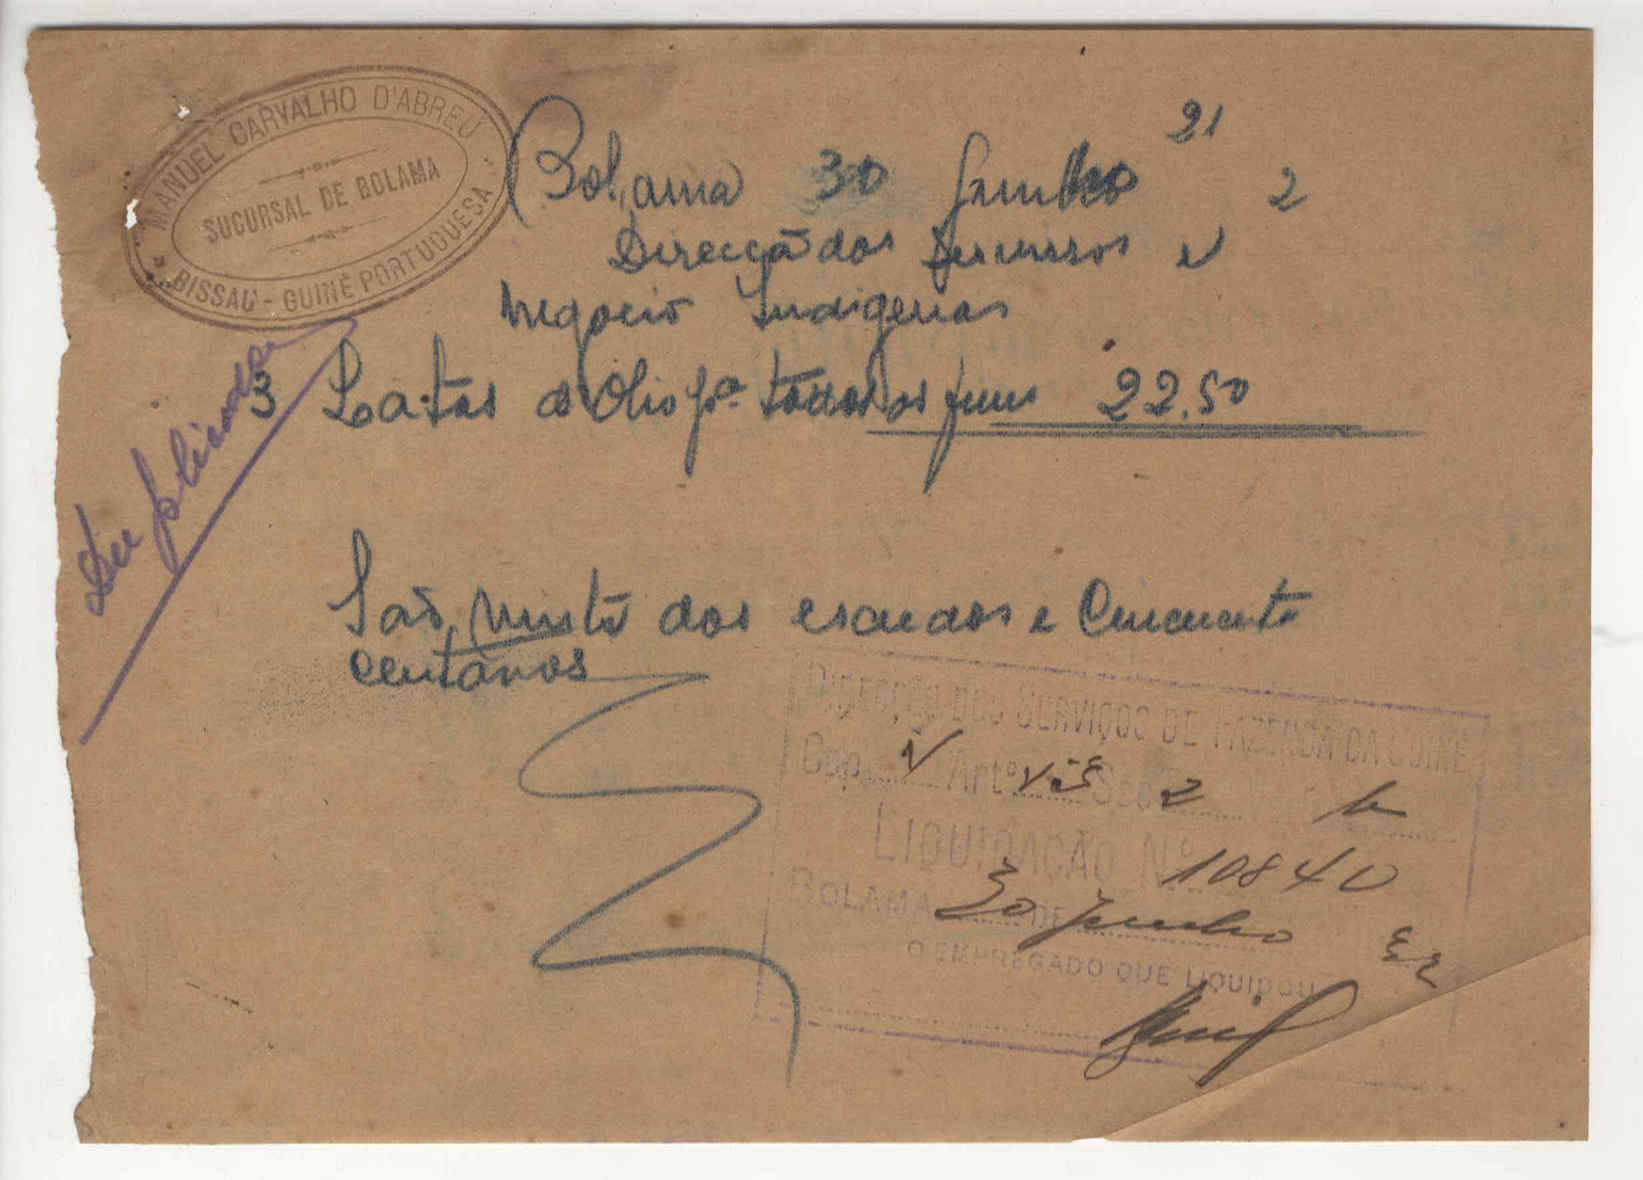 MANUEL CARVALHO D'ABREU
SUCURSAL DE BOLAMA
BISSAU - GUINÉ PORTUGUESA
Bolama 30 Junho
Direcção dos e
Negocio Indigenas
Duplicado
3 Latas Olio pª 22.50
São Vinte dos escudos e Cincuenta
centavos
DIRECÇÃO DOS SERVIÇOS DE FAZENDA DA GUINÉ
Cap. V Artº Sec 2
LIQUIDAÇÃO Nº 10840
BOLAMA 30 DE Junho 32
O EMPREGADO QUE LIQUIDOU